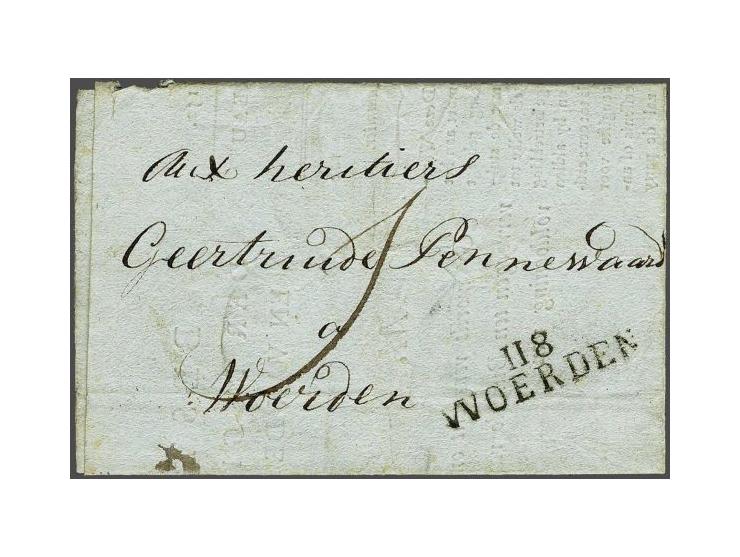 Aux heritiers
Geertruide Pennewaard
a
Woerden
118
WOERDEN